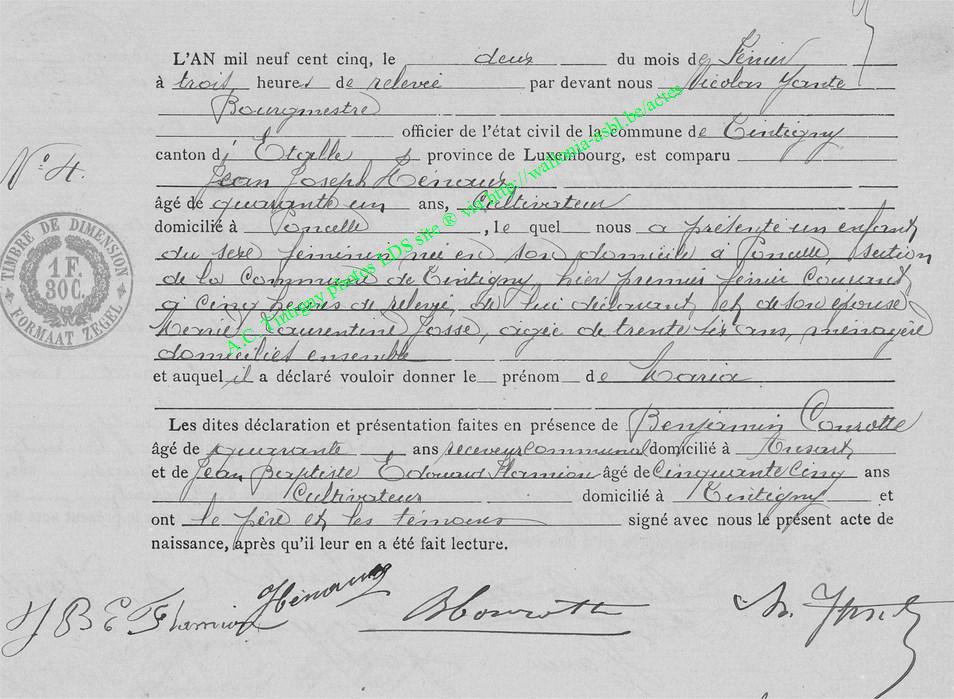 L'AN mil neuf cent cinq, le deux du mois de Février
à trois heures de relevée par devant nous Nicolas
Bourgmestre
officier de l'état civil de la commune de Tintigny
canton d' Etalle province de Luxembourg, est comparu
Jean Joseph Hénaux
N° 4.
âgé de quarante un ans, Cultivateur
domicilié à Poncelle, le quel nous a présenté un enfant
du sexe féminin née en son domicile à Poncelle, section
de la Commune de Tintigny, hier premier février courant
à cinq heures de relevée, de lui déclarant, et de son épouse
Marie Laurentine Josse, agée de trente six ans, ménagère
domiciliés ensemble
et auquel il a déclaré vouloir donner le prénom de Maria
TIMBRE DE DIMENSION
1 F.
30 C.
FORMAAT ZEGEL
Les dites déclaration et présentation faites en présence de Benjamin Conrotte
âgé de quarante ans receveur communal domicilié à Ansart
et de Jean Baptiste Edouard Flamion âgé de Cinquante Cinq ans
Cultivateur domicilié à Tintigny et
ont le père et les témoins signé avec nous le présent acte de
naissance, après qu'il leur en a été fait lecture.
J B E Flamion Hénaux B Conrotte N.
A.C. Tintigny photos LDS site ® via http://wallonia-asbl.be/actes